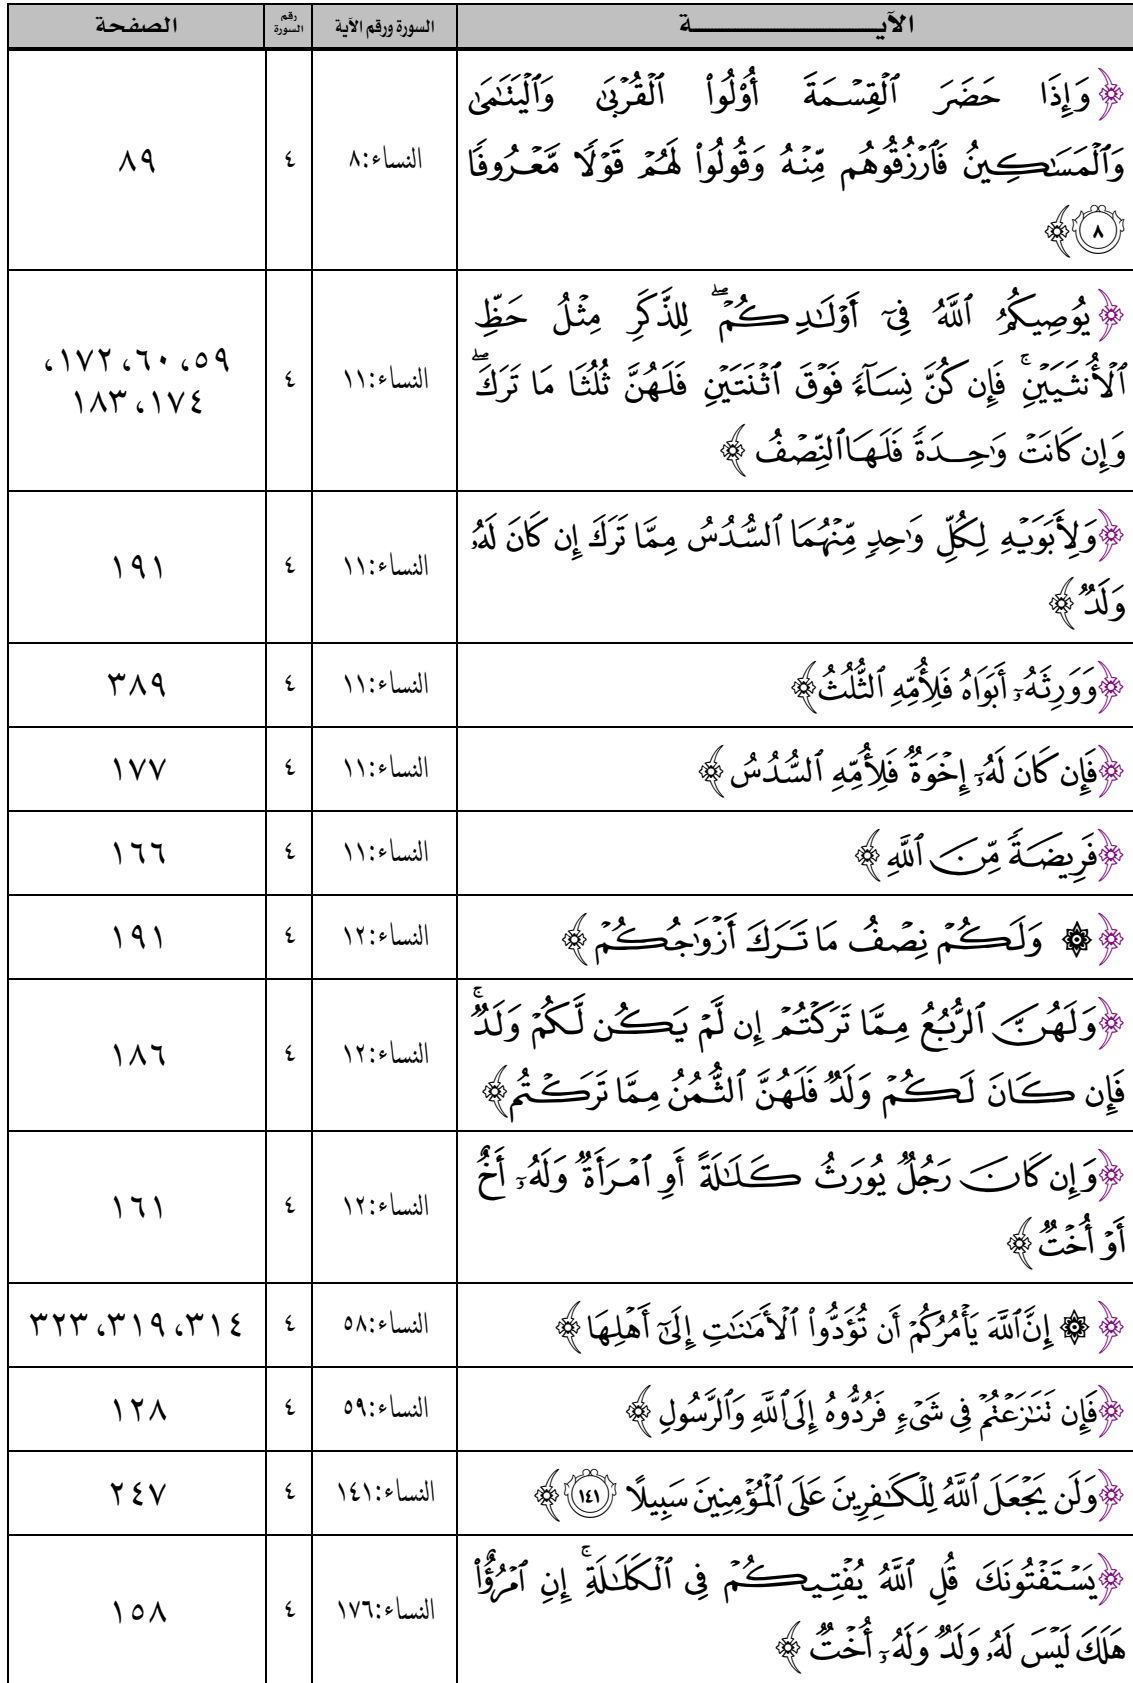 الآيــــــــــــــــــــة السورة ورقم الآية رقم السورة الصفحة
﴿وَإِذَا حَضَرَ ٱلۡقِسۡمَةَ أُوْلُواْ ٱلۡقُرۡبَىٰ وَٱلۡيَتَٰمَىٰ
وَٱلۡمَسَٰكِينُ فَٱرۡزُقُوهُم مِّنۡهُ وَقُولُواْ لَهُمۡ قَوۡلٗا مَّعۡرُوفٗا
٨﴾ النساء:٨ ٤ ٨٩
﴿يُوصِيكُمُ ٱللَّهُ فِيٓ أَوۡلَٰدِكُمۡۖ لِلذَّكَرِ مِثۡلُ حَظِّ
ٱلۡأُنثَيَيۡنِۚ فَإِن كُنَّ نِسَآءٗ فَوۡقَ ٱثۡنَتَيۡنِ فَلَهُنَّ ثُلُثَا مَا تَرَكَۖ
وَإِن كَانَتۡ وَٰحِدَةٗ فَلَهَا ٱلنِّصۡفُ﴾ النساء:١١ ٤ ٥٩، ٦٠، ١٧٢،
١٧٤، ١٨٣
﴿وَلِأَبَوَيۡهِ لِكُلِّ وَٰحِدٖ مِّنۡهُمَا ٱلسُّدُسُ مِمَّا تَرَكَ إِن كَانَ لَهُۥ
وَلَدٞ﴾ النساء:١١ ٤ ١٩١
﴿وَوَرِثَهُۥٓ أَبَوَاهُ فَلِأُمِّهِ ٱلثُّلُثُ﴾ النساء:١١ ٤ ٣٨٩
﴿فَإِن كَانَ لَهُۥٓ إِخۡوَةٞ فَلِأُمِّهِ ٱلسُّدُسُ﴾ النساء:١١ ٤ ١٧٧
﴿فَرِيضَةٗ مِّنَ ٱللَّهِ﴾ النساء:١١ ٤ ١٦٦
﴿۞ وَلَكُمۡ نِصۡفُ مَا تَرَكَ أَزۡوَٰجُكُمۡ﴾ النساء:١٢ ٤ ١٩١
﴿وَلَهُنَّ ٱلرُّبُعُ مِمَّا تَرَكۡتُمۡ إِن لَّمۡ يَكُن لَّكُمۡ وَلَدٞۚ
فَإِن كَانَ لَكُمۡ وَلَدٞ فَلَهُنَّ ٱلثُّمُنُ مِمَّا تَرَكۡتُم﴾ النساء:١٢ ٤ ١٨٦
﴿وَإِن كَانَ رَجُلٞ يُورَثُ كَلَٰلَةً أَوِ ٱمۡرَأَةٞ وَلَهُۥٓ أَخٌ
أَوۡ أُخۡتٞ﴾ النساء:١٢ ٤ ١٦١
﴿۞ إِنَّ ٱللَّهَ يَأۡمُرُكُمۡ أَن تُؤَدُّواْ ٱلۡأَمَٰنَٰتِ إِلَىٰٓ أَهۡلِهَا﴾ النساء:٥٨ ٤ ٣١٤، ٣١٩، ٣٢٣
﴿فَإِن تَنَٰزَعۡتُمۡ فِي شَيۡءٖ فَرُدُّوهُ إِلَى ٱللَّهِ وَٱلرَّسُولِ﴾ النساء:٥٩ ٤ ١٢٨
﴿وَلَن يَجۡعَلَ ٱللَّهُ لِلۡكَٰفِرِينَ عَلَى ٱلۡمُؤۡمِنِينَ سَبِيلًا ١٤١﴾ النساء:١٤١ ٤ ٢٤٧
﴿يَسۡتَفۡتُونَكَ قُلِ ٱللَّهُ يُفۡتِيكُمۡ فِي ٱلۡكَلَٰلَةِۚ إِنِ ٱمۡرُؤٌاْ
هَلَكَ لَيۡسَ لَهُۥ وَلَدٞ وَلَهُۥٓ أُخۡتٞ﴾ النساء:١٧٦ ٤ ١٥٨